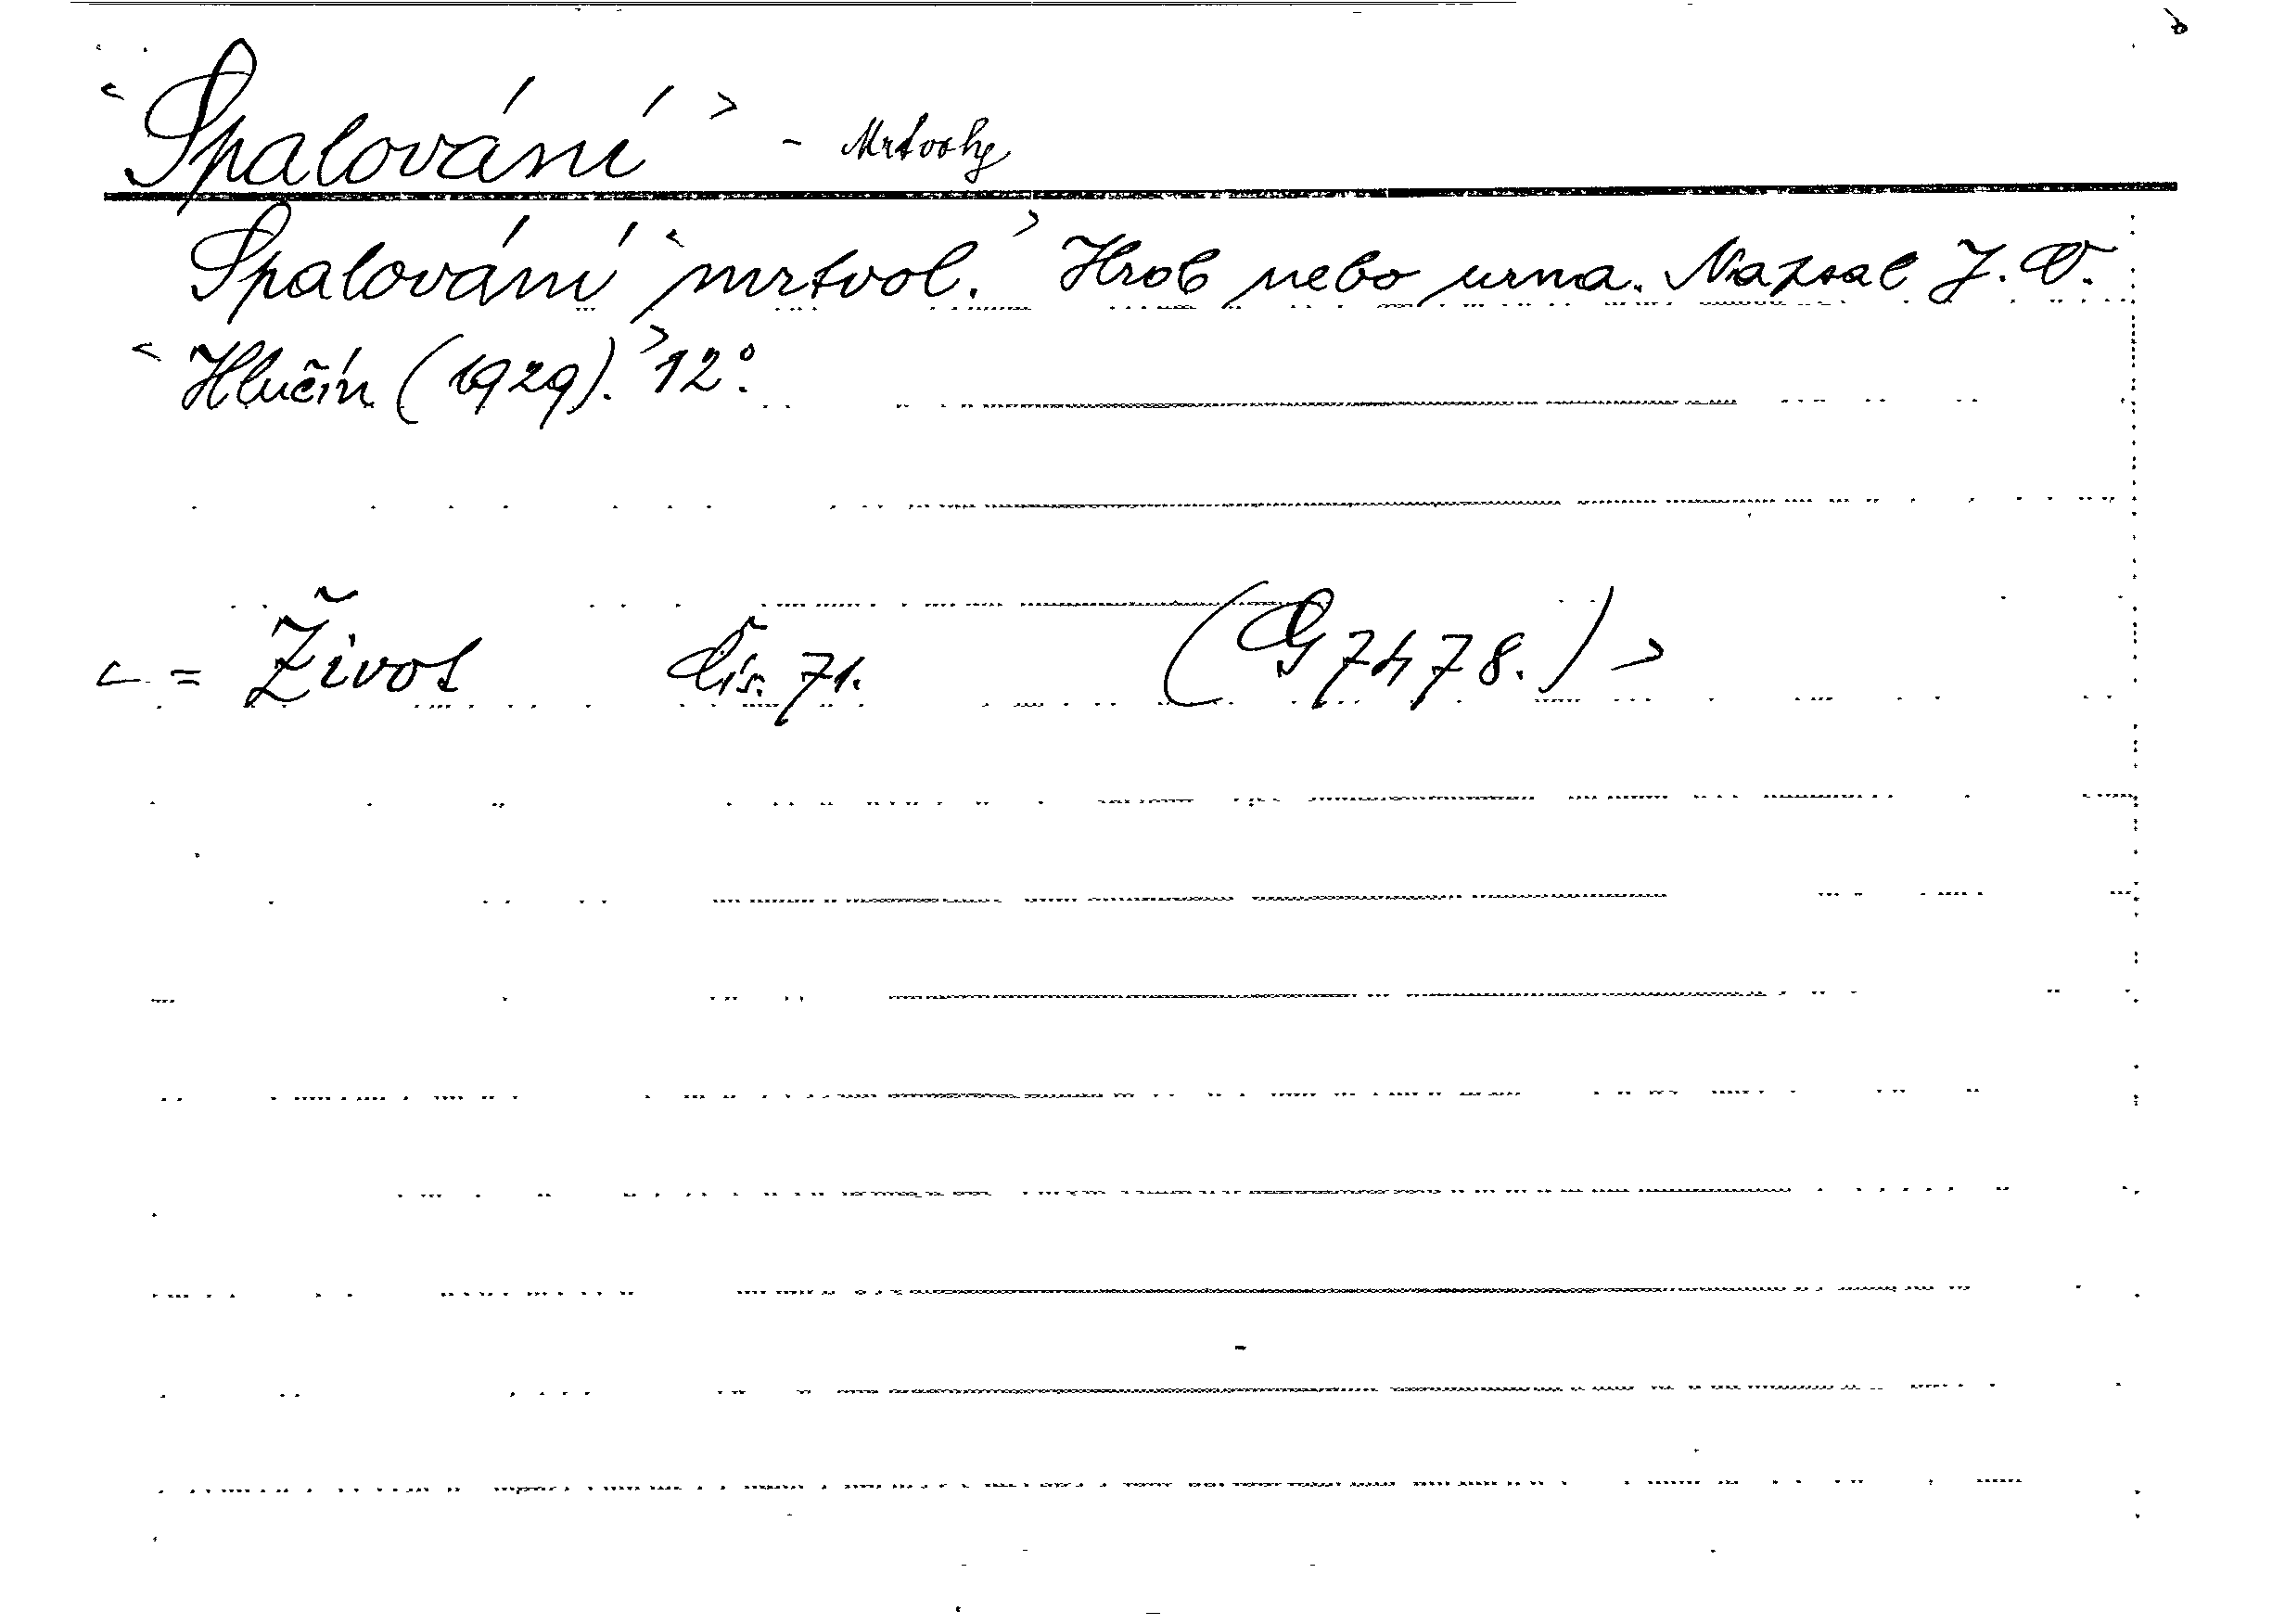 < Spalování > - Mrtvoly
Spalování < mrtvol. > Hrob nebo urna. Napsal J. V.
< Hlučín (1929). > 12°.
< = Život Čís. 71. (G 7478.) >